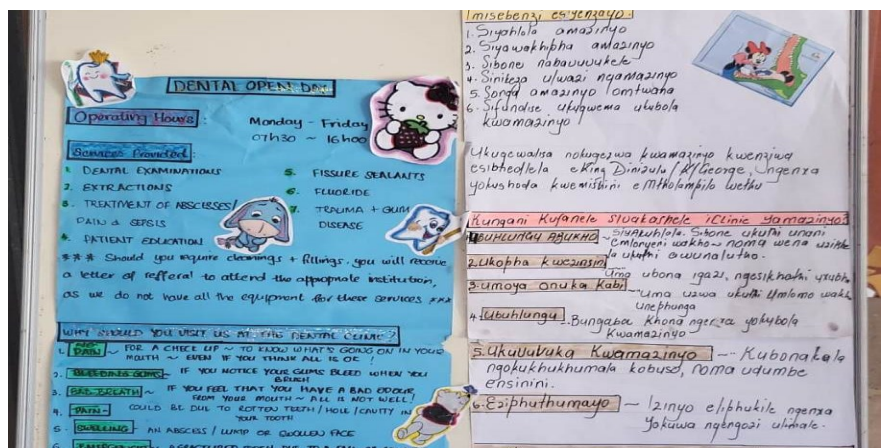 DENTAL OPEN DAY
Operating Hours:
Monday - Friday
07h30 ~ 16h00
Services Provided:
1. DENTAL EXAMINATIONS
2. EXTRACTIONS
3. TREATMENT OF ABSCESSES/
PAIN & SEPSIS
4. PATIENT EDUCATION
5. FISSURE SEALANTS
6. FLUORIDE
7. TRAUMA + GUM
DISEASE
*** Should you require cleanings + fillings, you will receive
a letter of refferal to attend the appropriate institution,
as we do not have all the equipment for these services ***
WHY SHOULD YOU VISIT US AT THE DENTAL CLINIC?
1. PAIN ~ FOR A CHECK UP ~ TO KNOW WHAT'S GOING ON IN YOUR
MOUTH ~ EVEN IF YOU THINK ALL IS OK!
2. BLEEDING GUMS ~ IF YOU NOTICE YOUR GUMS BLEED WHEN YOU
BRUSH
3. BAD BREATH ~ IF YOU FEEL THAT YOU HAVE A BAD ODOUR
FROM YOUR MOUTH ~ ALL IS NOT WELL!
4. PAIN - COULD BE DUE TO ROTTEN TEETH / HOLE / CAVITY IN
YOUR TOOTH
5. SWELLING - AN ABSCESS / LUMP OR SWOLLEN FACE
Imisebenzi esiyenzayo:
1. Siyahlola amazinyo
2. Siyawakhipha amazinyo
3. Sibone nabavuvukele
4. Sinikeza ulwazi ngamazinyo
5. Songa amazinyo omtwana
6. Sifundise ukugwema ukubola
kwamazinyo
Ukugcwalisa nokugezwa kwamazinyo kwenziwa
esibhedlela eKing Dinizulu / K/George, Ungenxa
yokushoda kwemishini eMtholampilo wethu
Kungani Kufanele Sivakashele iClinic Yamazinyo?
UBUHLUNGU ABUKHO ~ Siyakuhlola. Sibone ukuthi unani
emlonyeni wakho ~ noma wena
ukuthi awunalutho.
2. Ukopha kwezinsini
Uma ubona igazi, ngesikhathi
3. umoya onuka Kabi
~ Uma uzwa ukuthi Umlomo
unephunga
4. Ubuhlungu - Bungaba Khona ngenxa yokubola
Kwamazinyo
5. Ukuvuvuka Kwamazinyo ~ Kubonakala
ngokukhukhumala kobuso, noma udumbe
ensinini.
6. Eziphuthumayo ~ Izinyo eliphukile ngenxa
Yokuwa ngengozi ulimale.